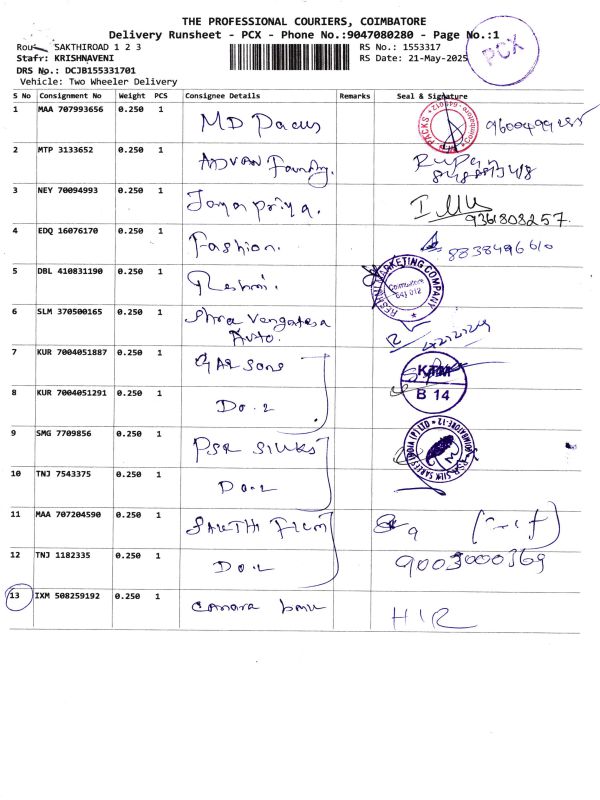 THE PROFESSIONAL COURIERS, COIMBATORE
Delivery Runsheet - PCX - Phone No.:9047080280 - Page No.:1
SAKTHIROAD 1 2 3
RS No.: 1553317
PCX
Stafr: KRISHNAVENI
RS Date: 21-May-2025
DRS No.: DCJB155331701
Vehicle: Two Wheeler Delivery
S No Consignment No Weight PCS Consignee Details Remarks Seal & Signature
1 MAA 707993656 0.250 1 MD Pacus
2 MTP 3133652 0.250 1 ADVAN Foundry.
3 NEY 70094993 0.250 1 Jayapriya. 9361808257.
4 EDQ 16076170 0.250 1 Fashion. 8838496610
5 DBL 410831190 0.250 1 Reshmi. RESHMI MARKETING COMPANY Coimbatore 641 012
6 SLM 370500165 0.250 1 Shra Vengatesa
Auto.
7 KUR 7004051887 0.250 1 GAR Sons
8 KUR 7004051291 0.250 1 Do.2 B 14
9 SMG 7709856 0.250 1 PSR SILKS
10 TNJ 7543375 0.250 1 Do.2
11 MAA 707204590 0.250 1 SAKTHI FILM
12 TNJ 1182335 0.250 1 Do.2 9003000369
13 IXM 508259192 0.250 1 Canara H1R